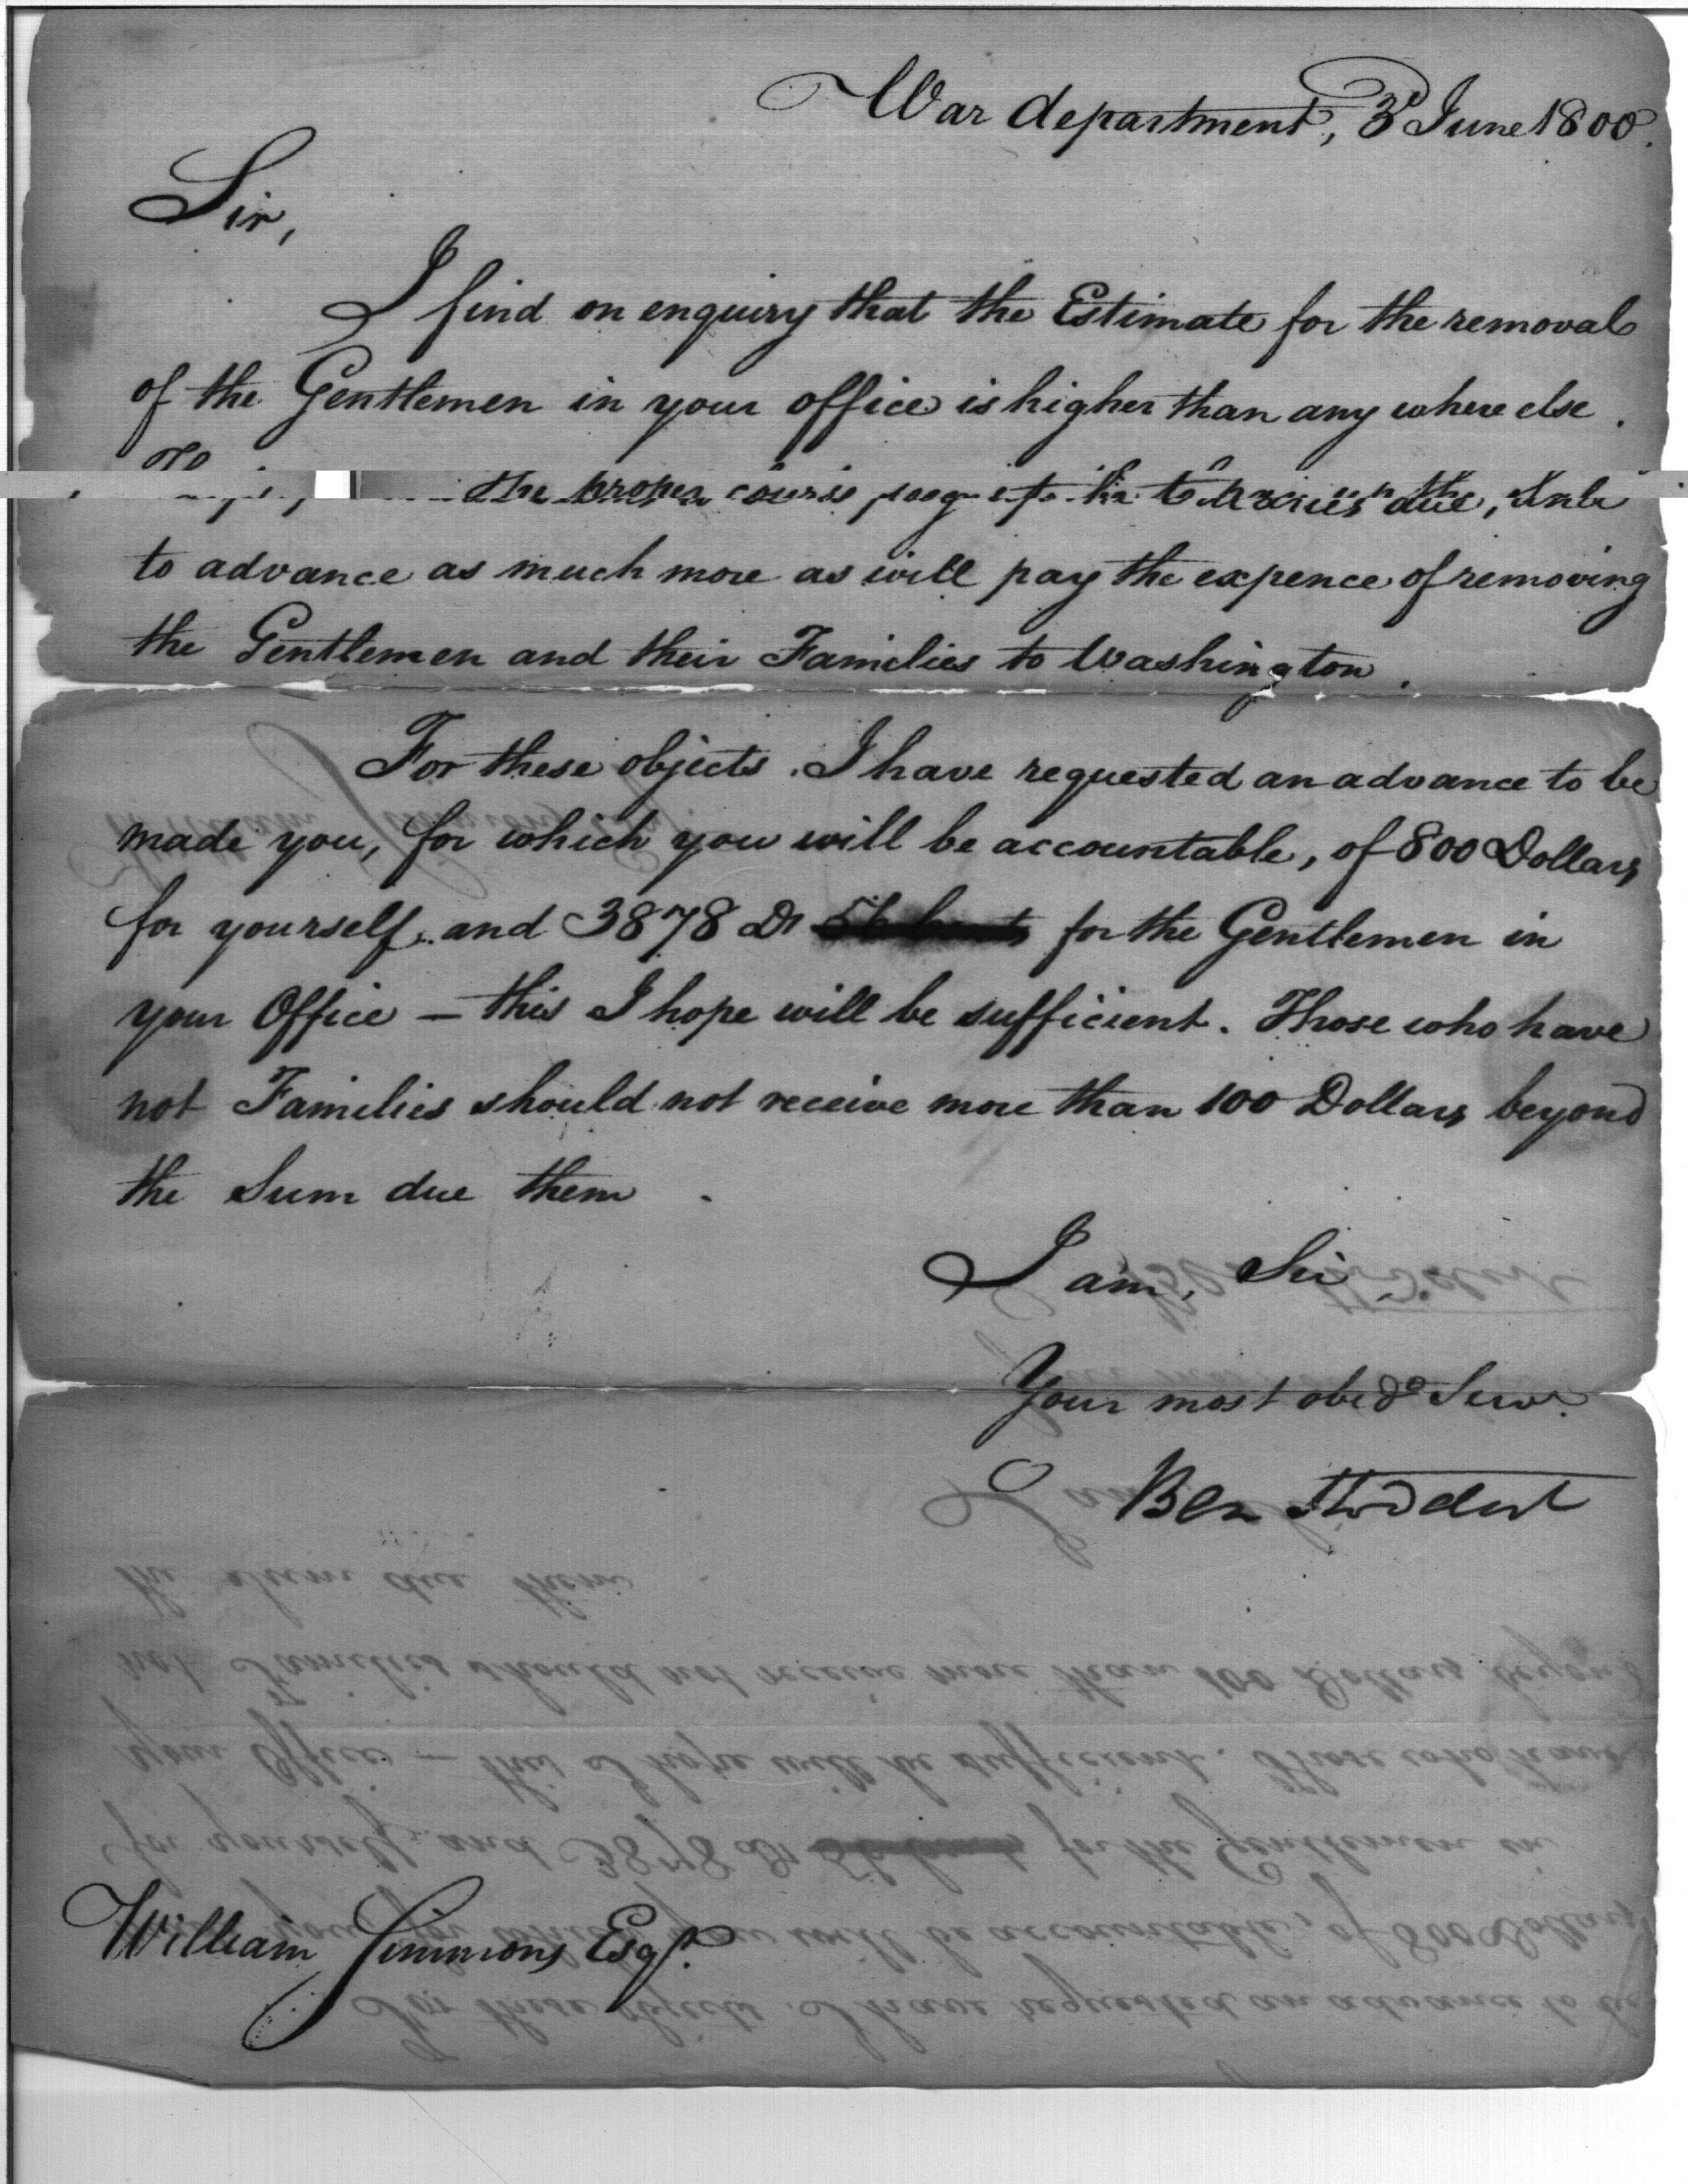 War department, 3d June 1800.
Sir,
I find on enquiry that the Estimate for the removal
of the Gentlemen in your office is higher than any where else.
the proper due,
to advance as much more as will pay the expence of removing
the Gentlemen and their Families to Washington.
For these objects. I have requested an advance to be
made you, for which you will be accountable, of 800 Dollars
for yourself, and 3878 Ds for the Gentlemen in
your Office — this I hope will be sufficient. Those who have
not Families should not receive more than 100 Dollars beyond
the Sum due them.
I am, Sir,
Your most obed Servt.
Ben Stoddert
William Simmons Esqr.